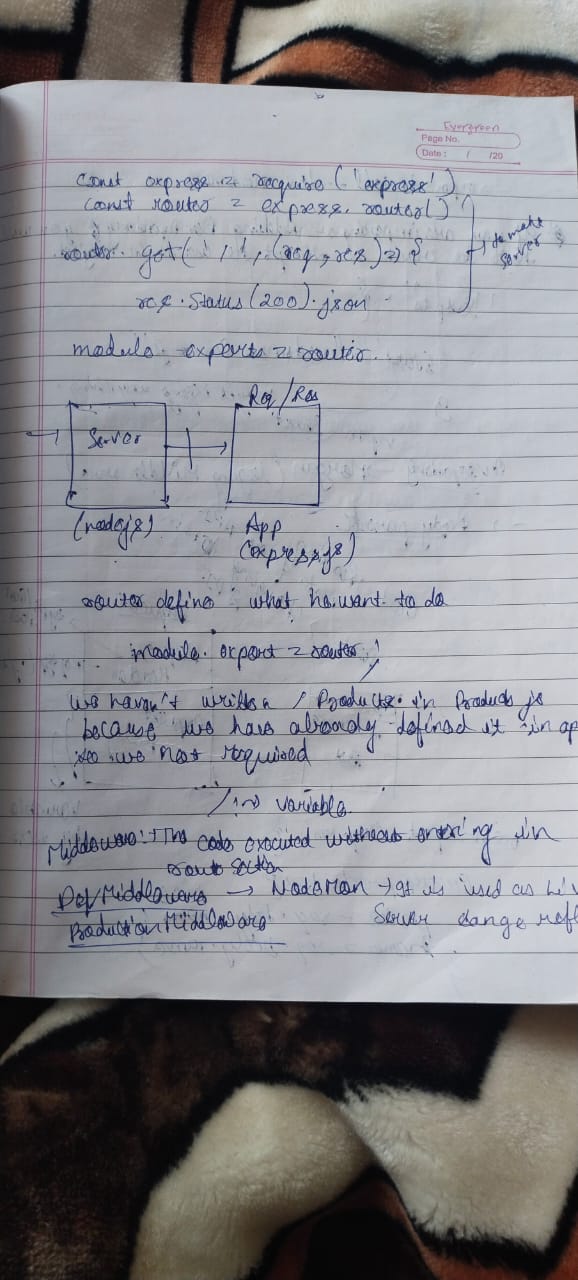 Evergreen
Page No.
Date : / /20
const express = require('express')
const router = express.router()
router. get('/', (req, res) => {
res.status(200).json
→ to make server
module exports = router.
Req / Res
Server
(nodejs)
App
(expressjs)
router define what he want to do
module. export = router;
we haven't written / Products in Products js
because we have already defined it in ap
so we not required
/:id variable
Middleware: The code executed without entering in
route section
Def Middleware → Nodemon → It is used as liv
Server
Production Middleware